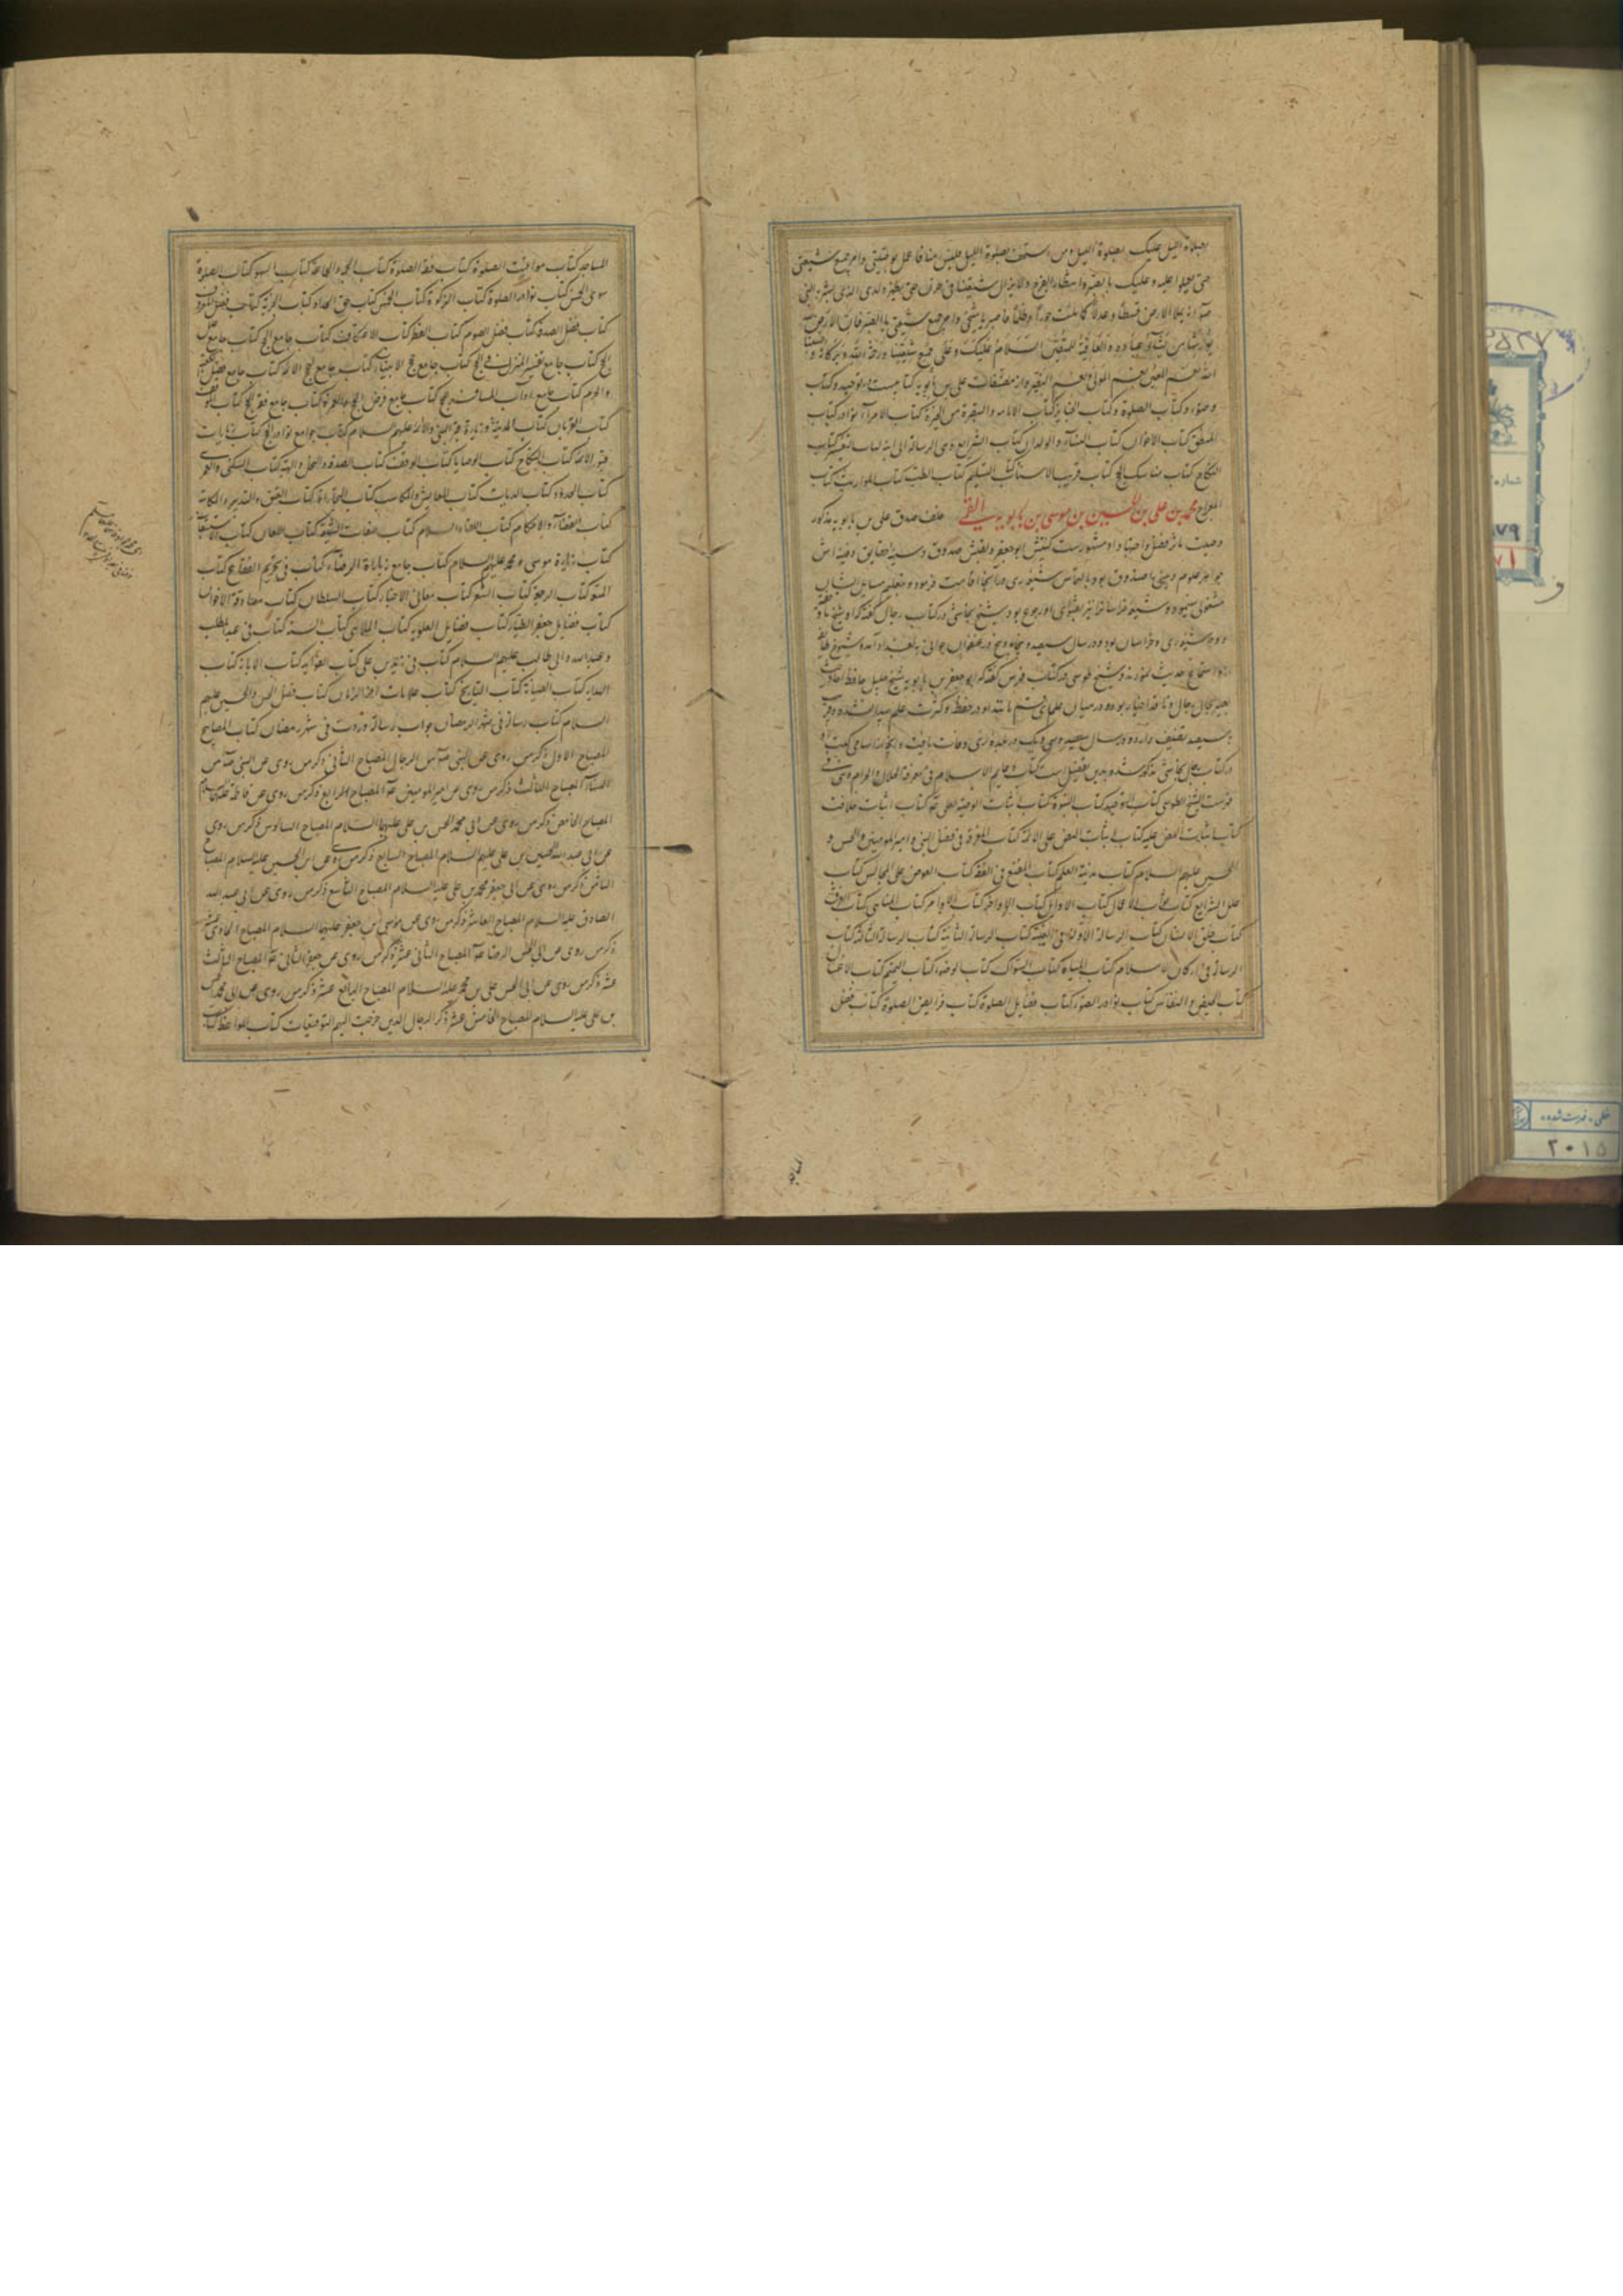 بصلاة اللیل علیک بصلوة اللیل و من استخف بصلوة اللیل فلیس منا فاعمل بوصیتی وامر جمیع شیعتی
حتی یعملوا علیه و علیک بالصبر و انتظار الفرج ولا یزال شیعتنا فی حزن حتی یظهر ولدی الذی بشر به النبی
انه یملا الارض قسطا و عدلا کما ملئت جورا و ظلما فاصبر یا شیخی وامر جمیع شیعتی بالصبر فان الارض لله
یورثها من یشاء من عباده والعاقبة للمتقین السلام علیک و علی جمیع شیعتنا و رحمة الله و برکاته و
نعم المولی و نعم النصیر و از مصنفات علی بن بابویه کتابیست در توحید و کتاب
وضو و کتاب الصلوة و کتاب الجنایز کتاب الامامه والتبصرة من الحیرة کتاب الاملاء نوادر کتاب
المنطق کتاب الاخوان کتاب النساء والولدان کتاب الشرایع و هی الرسالة الی ابنه کتاب التفسیر کتاب
النکاح کتاب مناسک الحج کتاب قرب الاسناد کتاب التسلیم کتاب الطب کتاب المواریث کتاب
المعراج محمد بن علی بن الحسین بن موسی بن بابویه القمی خلف صدق علی بن بابویه مذکور
وصیت مآثر فضل و اجتهاد او مشهورست کنیتش ابو جعفر و لقبش صدوق و سینه حقایق دفینه اش
جواهر علوم دینی را صندوق بود و بالتماس شیعه ری در آنجا اقامت فرمود و بتعلیم مسایل ایشان
مشغولی مینمود و شیعه خراسان نیز بفتوای او رجوع بود و شیخ نجاشی در کتاب رجال گفته که او شیخ ما و فقیه
و وجه شیعه ری و خراسان بود و در سال سیصد و پنجاه و پنج در عنفوان جوانی به بغداد آمد و شیوخ طایفه
ازو استماع حدیث نمودند و شیخ طوسی در کتاب فهرس گفته که ابو جعفر بن بابویه شیخ جلیل حافظ احادیث
بصیر بحال رجال و ناقد اخبار بوده و در میان علمای قم مانند او در حفظ و کثرت علم پیدا نشده و قریب
به سیصد تصنیف دارد و در سال سیصد و هشتاد و یک در بلده ری وفات یافت و آنچه از اسامی کتب او
در کتاب رجال نجاشی مذکور شده بدین تفصیل است کتاب دعایم الاسلام فی معرفة الحلال والحرام و فی
فهرست الشیخ الطوسی کتاب التوحید کتاب النبوة کتاب اثبات الوصیة لعلی ع کتاب اثبات خلافته
کتاب اثبات النص علیه کتاب اثبات النص علی الائمة کتاب المعرفة فی فضل النبی و امیر المومنین والحسن و
الحسین علیهم السلام کتاب مدینة العلم کتاب المقنع فی الفقه کتاب العوض علی المجالس کتاب
علل الشرایع کتاب ثواب الاعمال کتاب الاوایل کتاب الاواخر کتاب الاوامر کتاب المناهی کتاب الفرق
کتاب خلق الانسان کتاب الرسالة الاولة فی الغیبة کتاب الرسالة الثانیة کتاب الرسالة الثالثة کتاب
الرسالة فی ارکان الاسلام کتاب المیاه کتاب السواک کتاب الوضوء کتاب التیمم کتاب الاغسال
کتاب الحیض و النفاس کتاب نوادر الوضوء کتاب فضایل الصلوة کتاب فرایض الصلوة کتاب فضل
المساجد
المساجد کتاب مواقیت الصلوة کتاب فقه الصلوة کتاب الجمعه والجماعة کتاب السهو کتاب الصلوة
سوی الخمس کتاب نوادر الصلوة کتاب الزکوة کتاب الخمس کتاب حق الجداد کتاب الجزیة کتاب فضل المعروف
کتاب فضل الصدقه کتاب فضل الصوم کتاب الفطر کتاب الاعتکاف کتاب جامع الحج کتاب جامع علل
الحج کتاب جامع تفسیر المنزل فی الحج کتاب جامع حجج الانبیاء کتاب جامع حجج الائمة کتاب جامع فضل الکعبة
والحرم کتاب جامع آداب المسافر للحج کتاب جامع فرض الحج والعمرة کتاب جامع فقه الحج کتاب الموقف
کتاب القربان کتاب المدینة و زیارة قبر النبی والائمة علیهم السلام کتاب جوامع نوادر الحج کتاب زیارات
قبور الائمة کتاب النکاح کتاب الوصایا کتاب الوقف کتاب الصدقه والنحل والهبة کتاب السکنی والعمری
کتاب الحدود کتاب الدیات کتاب المعایش والمکاسب کتاب التجارات کتاب العتق والتدبیر والمکاتبة
کتاب القضاء والاحکام کتاب اللقاء والسلام کتاب صفات الشیعة کتاب اللعان کتاب الاستسقاء
کتاب زیارة موسی و محمد علیهم السلام کتاب جامع زیارة الرضاء کتاب فی تحریم الفقاع کتاب
المتعة کتاب الرجعة کتاب الشعر کتاب معانی الاخبار کتاب السلطان کتاب مصادقة الاخوان
کتاب فضایل جعفر الطیار کتاب فضایل العلویه کتاب الملاهی کتاب السنة کتاب فی عبد المطلب
و عبد الله و ابی طالب علیهم السلام کتاب فی زید بن علی کتاب الفواید کتاب الابانة کتاب
الهدایه کتاب الضیافة کتاب التاریخ کتاب علامات آخر الزمان کتاب فضل الحسن والحسین علیهم
السلام کتاب رسالة فی شهر رمضان جواب رسالة وردت فی شهر رمضان کتاب المصابیح
المصباح الاول ذکر من روی عن النبی ص من الرجال المصباح الثانی ذکر من روی عن النبی ص من
النساء المصباح الثالث ذکر من روی عن امیر المومنین ع المصباح الرابع ذکر من روی عن فاطمة علیها السلام
المصباح الخامس ذکر من روی عن ابی محمد الحسن بن علی علیهما السلام المصباح السادس ذکر من روی
عن ابی عبد الله الحسین بن علی علیهم السلام المصباح السابع ذکر من روی عن علی بن الحسین علیه السلام المصباح
الثامن ذکر من روی عن ابی جعفر محمد بن علی علیه السلام المصباح التاسع ذکر من روی عن ابی عبد الله
الصادق علیه السلام المصباح العاشر ذکر من روی عن موسی بن جعفر علیهما السلام المصباح الحادی عشر
ذکر من روی عن ابی الحسن الرضا ع المصباح الثانی عشر ذکر من روی عن جعفر الثانی ع المصباح الثالث
عشر ذکر من روی عن ابی الحسن علی بن محمد علیه السلام المصباح الرابع عشر ذکر من روی عن ابی محمد الحسن
بن علی علیه السلام المصباح الخامس عشر ذکر الرجال الذین خرجت الیهم التوقیعات کتاب المواعظ کتاب
شماره
خطی - فهرست شده
۲۰۱۵